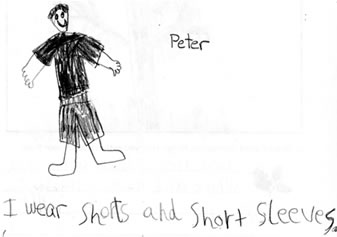 Peter
I wear Shorts and Short Sleeves,